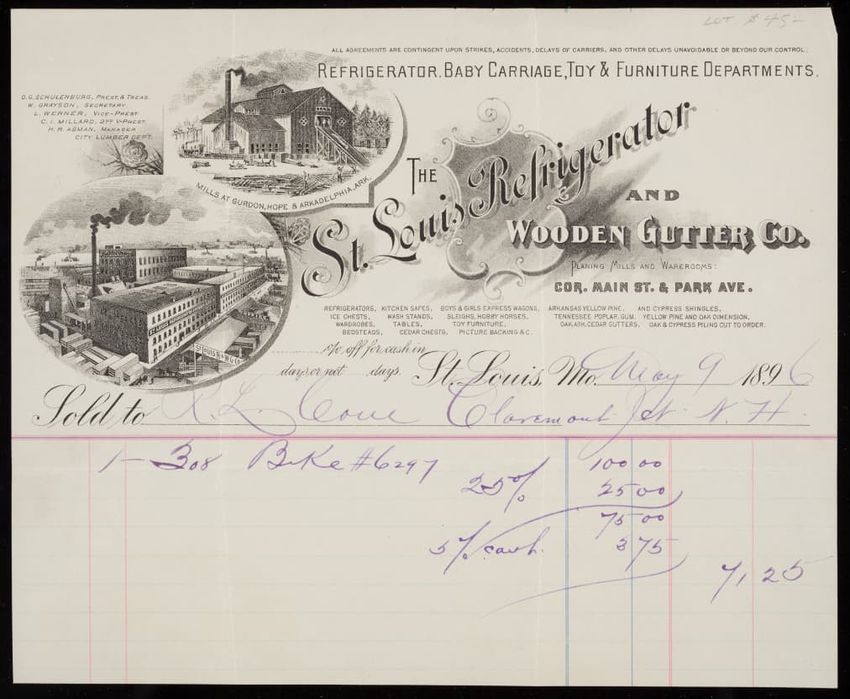 LOT $45-
ALL AGREEMENTS ARE CONTINGENT UPON STRIKES, ACCIDENTS, DELAYS OF CARRIERS, AND OTHER DELAYS UNAVOIDABLE OR BEYOND OUR CONTROL.
REFRIGERATOR, BABY CARRIAGE, TOY & FURNITURE DEPARTMENTS.
O.G. SCHULENBURG, PREST. & TREAS.
W. GRAYSON, SECRETARY.
L. WERNER, VICE-PREST.
C. I. MILLARD, 2ND V-PREST.
H. R. ASMAN, MANAGER
CITY LUMBER DEPT.
MILLS AT GURDON, HOPE & ARKADELPHIA, ARK.
THE
St. Louis Refrigerator
AND
WOODEN GUTTER CO.
PLANING MILLS AND WAREROOMS:
COR. MAIN ST. & PARK AVE.
REFRIGERATORS, KITCHEN SAFES, BOYS & GIRLS EXPRESS WAGONS, ARKANSAS YELLOW PINE, AND CYPRESS SHINGLES,
ICE CHESTS, WASH STANDS, SLEIGHS, HOBBY HORSES, TENNESSEE POPLAR, GUM, YELLOW PINE AND OAK DIMENSION,
WARDROBES, TABLES, TOY FURNITURE, OAK, ASH, CEDAR GUTTERS, OAK & CYPRESS PILING OUT TO ORDER.
BEDSTEADS, CEDAR CHESTS, PICTURE BACKING & C.
% off for cash in
days or not days. St. Louis, Mo. May 9 1896
Sold to R. L. Claremont Jct. N. H.
1 - 308 Bike #6297 100 00
25% 25 00
75 00
5% cash. 3 75
71,25